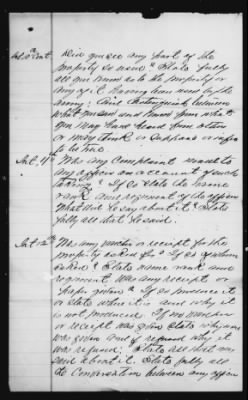 Int. 10th Cont. Did you see any part of the
property so used? State fully
all you know as to the property or
any of it having been used by the
army; And distinguish between
what you saw and know from what
you may have heard from others
or may think or suppose or infer
to be true.
Int. 11th Was any Complaint made to
any officer on account of such
taking? If so state the name
rank and regiment of the officer
What did he say about it? State
fully all that he said.
Int 12th Was any voucher or receipt for this
property asked for? If so of whom
asked? State name rank and
regiment was any receipt or
given? If so produce it
or state where it is and why it
is not produced. If no voucher
or receipt was given State why none
was given and if refused why it
was refused. State all that was
said about it. State fully all
the Conversation between any officer